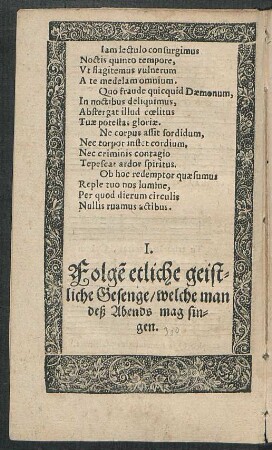 Iam lectulo consurgimus
Noctis quinto tempore,
Vt flagitemus vulnerum
A te medelam omnium.
Quo fraude quicquid Dæmonum,
In noctibus deliquimus,
Abstergat illud cœlitus
Tuæ potestas gloriæ.
Ne corpus assit sordidum,
Nec torpor instet cordium,
Nec criminis contagio
Tepescat ardor spiritus.
Ob hoc redemptor quæsumus
Reple tuo nos lumine,
Per quod dierum circulis
Nullis ruamus actibus.
I.
Folgẽ etliche geist-
liche Gesenge/welche man
deß Abends mag sin-
gen.